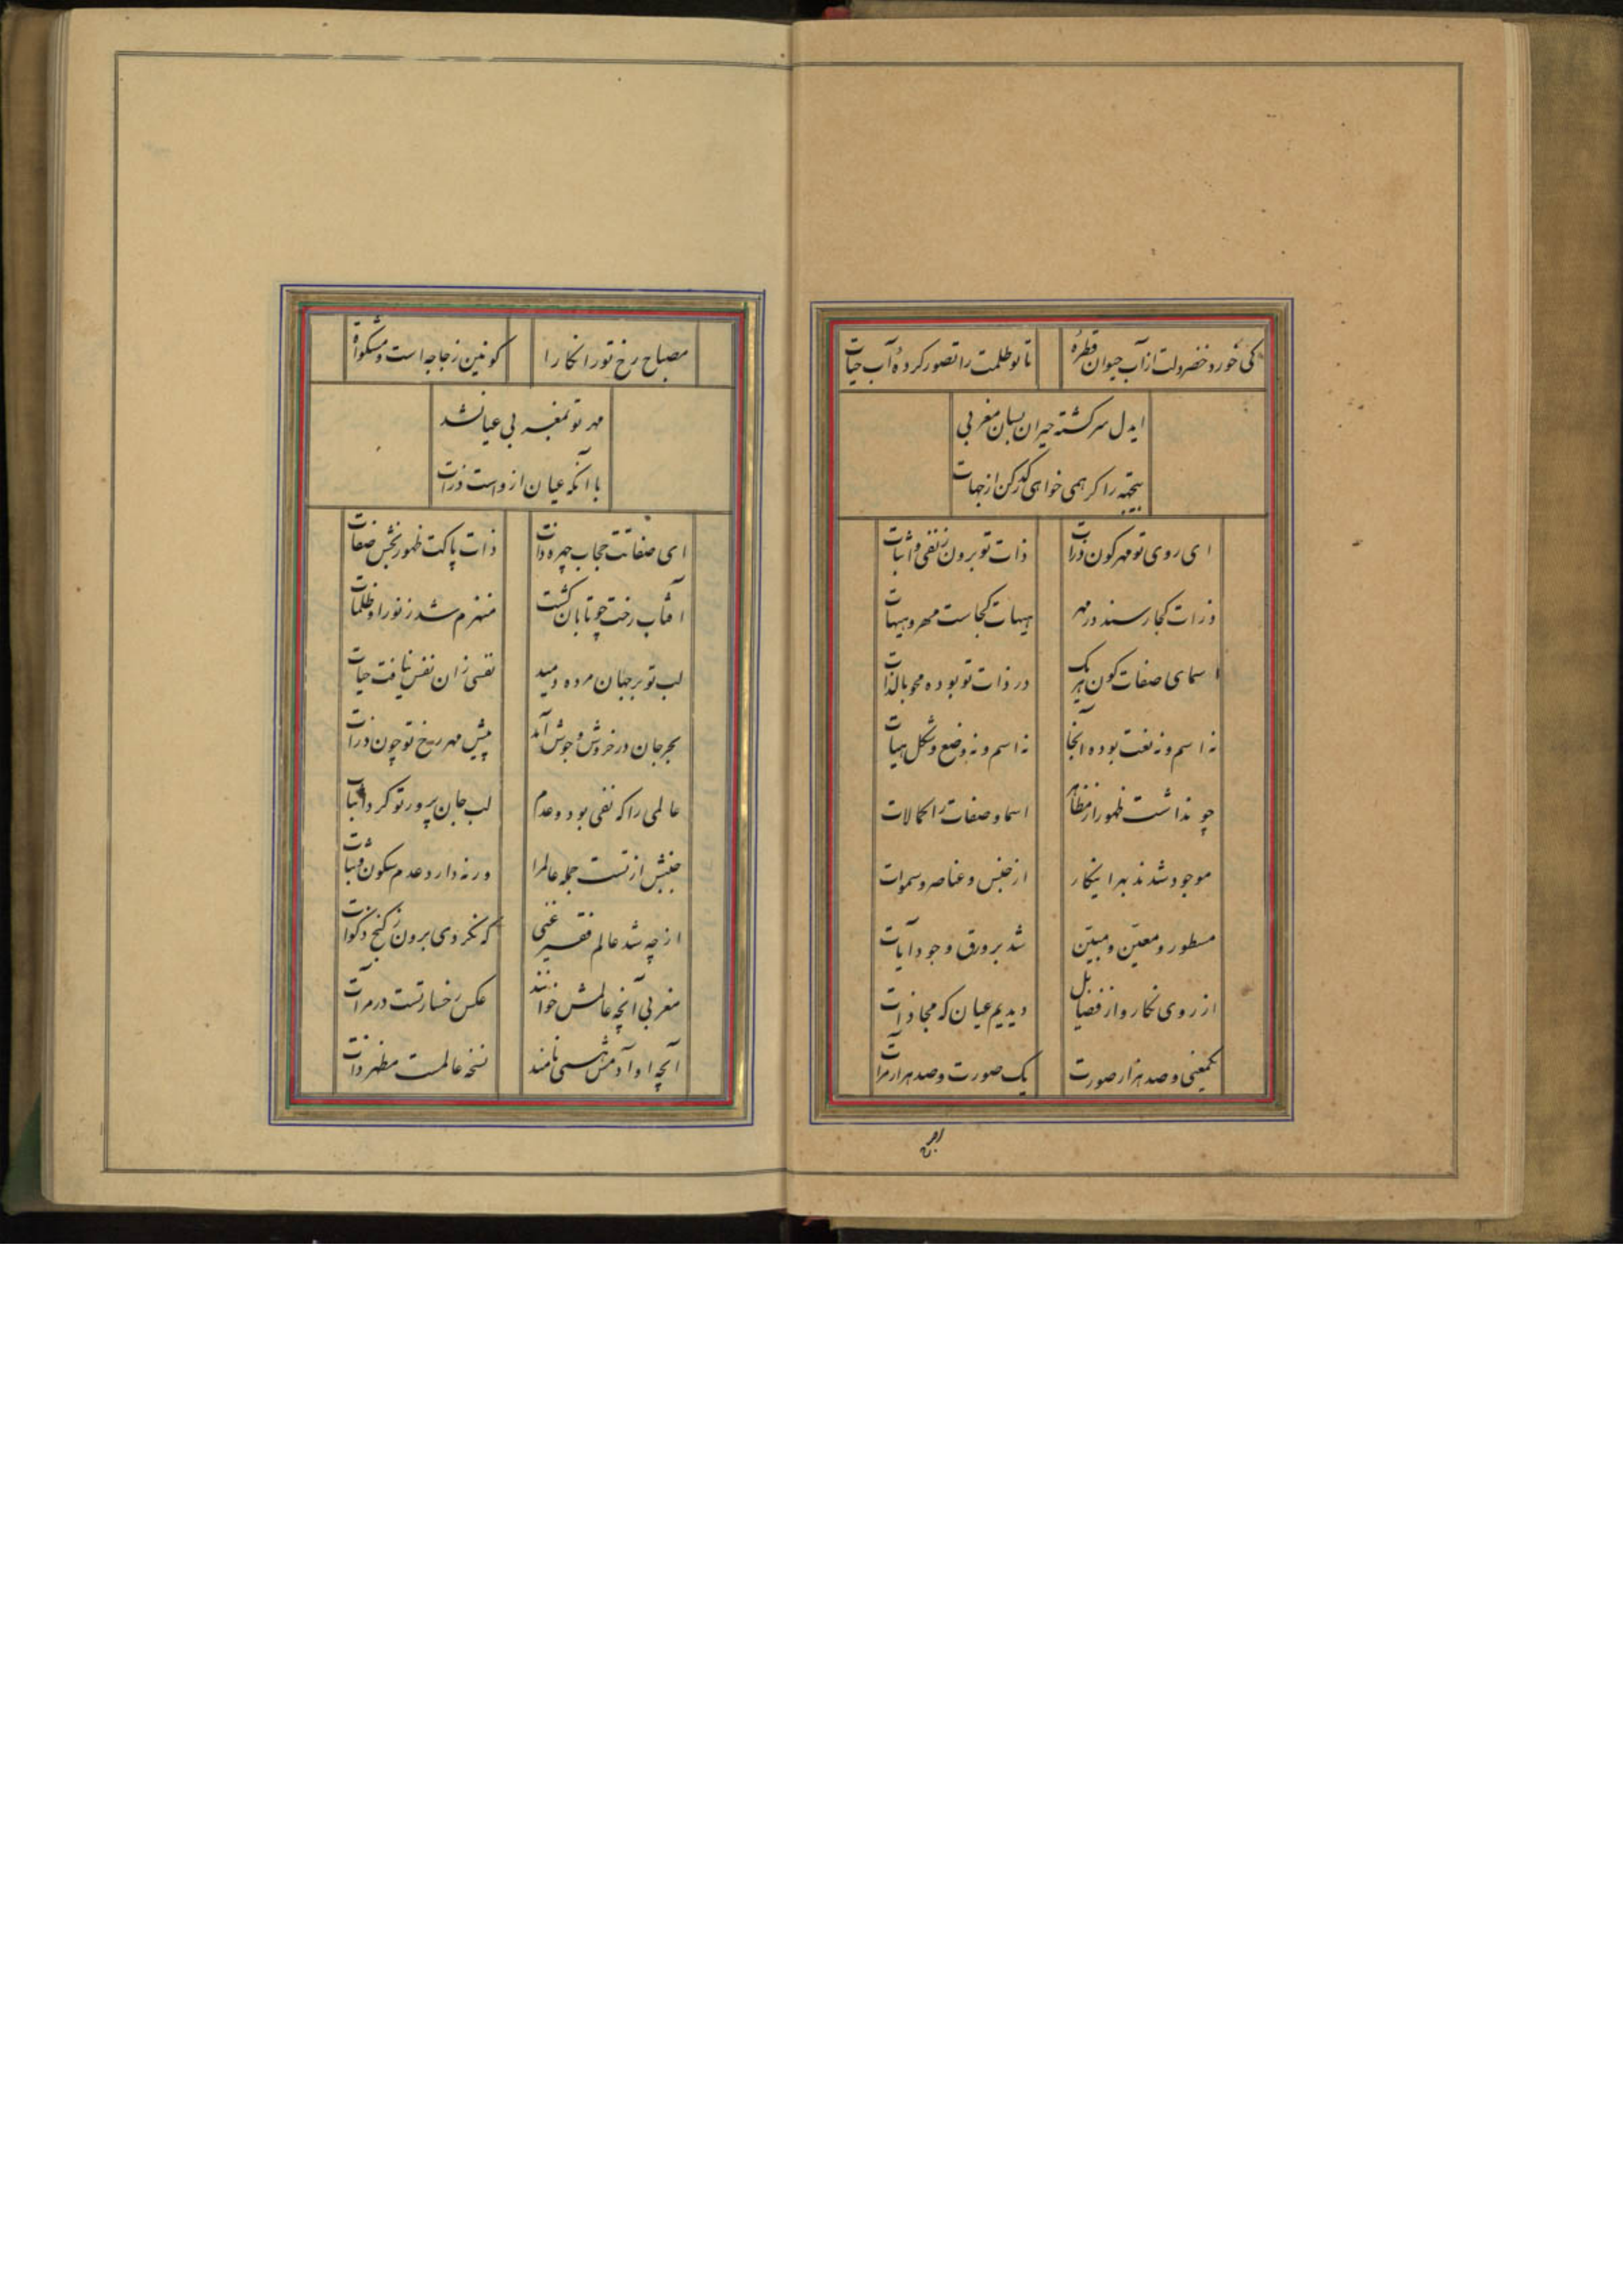 کی خورد خضر دلت از آب حیوان قطرهٔ تا تو ظلمت را تصور کردهٔ آب حیات
ایدل سرکشته حیران بسان مغربی
بیجهته را کر همی خواهی کذر کن از جهات
ای روی تو مهر کون ذرات ذات تو برون ز نفی و اثبات
ذرات کجا رسند در مهر هیهات کجاست مهر و هیهات
اسمای صفات کون هر یک در ذات تو بوده محو بالذات
نه اسم و نه نعت بوده آنجا نه اسم و نه وضع و شکل هیات
چو نداشت ظهور از مظاهر اسما و صفات را کمالات
موجود شدند بهر اینکار از جنس و عناصر و سموات
مسطور و معین و مبین شد بر ورق وجود آیات
از روی نکار و از قضایا بل دیدیم عیان که محاذات
یکمعنی و صد هزار صورت یک صورت و صد هزار مرآت
مصباح رخ تو را نکارا کونین زجاجه است و مشکوة
مهر تو بمغربی عیانشد
با آنکه عیان ازوست ذرات
ای صفاتت حجاب چهره ذات ذات پاکت ظهور بخش صفات
آفتاب رخت چو تابان کشت منهزم شد ز نور او ظلمات
لب تو بر جهان مرده دمید نفسی زان نفس بیافت حیات
بحر جان در خروش و جوش آمد پیش مهر رخ تو چون ذرات
عالمی را که نفی بود و عدم لب جان پرور تو کرد اثبات
جنبش از تست جمله عالمرا ور نه دارد عدم سکون و ثبات
از چه شد عالم فقیر غنی که نکردی برون ز کنج زکوات
مغربی آنچه عالمش خوانند عکس رخسار تست در مرآت
آنچه او آدمش همی نامند نسخه عالمست مظهر ذات